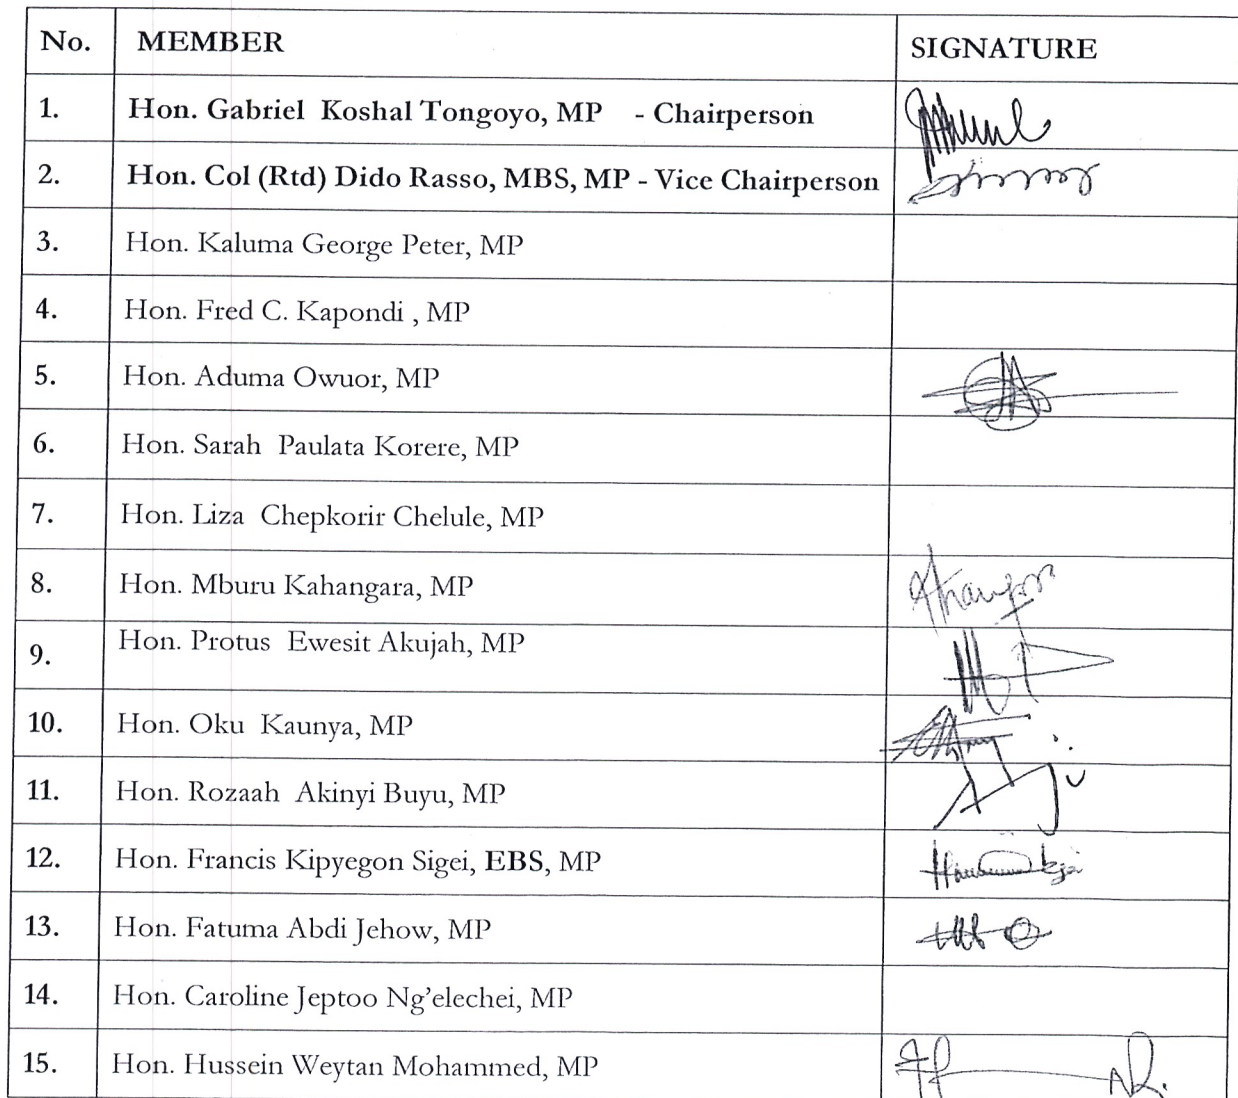 No. MEMBER SIGNATURE
1. Hon. Gabriel Koshal Tongoyo, MP - Chairperson
2. Hon. Col (Rtd) Dido Rasso, MBS, MP - Vice Chairperson
3. Hon. Kaluma George Peter, MP
4. Hon. Fred C. Kapondi , MP
5. Hon. Aduma Owuor, MP
6. Hon. Sarah Paulata Korere, MP
7. Hon. Liza Chepkorir Chelule, MP
8. Hon. Mburu Kahangara, MP
9. Hon. Protus Ewesit Akujah, MP
10. Hon. Oku Kaunya, MP
11. Hon. Rozaah Akinyi Buyu, MP
12. Hon. Francis Kipyegon Sigei, EBS, MP
13. Hon. Fatuma Abdi Jehow, MP
14. Hon. Caroline Jeptoo Ng'elechei, MP
15. Hon. Hussein Weytan Mohammed, MP